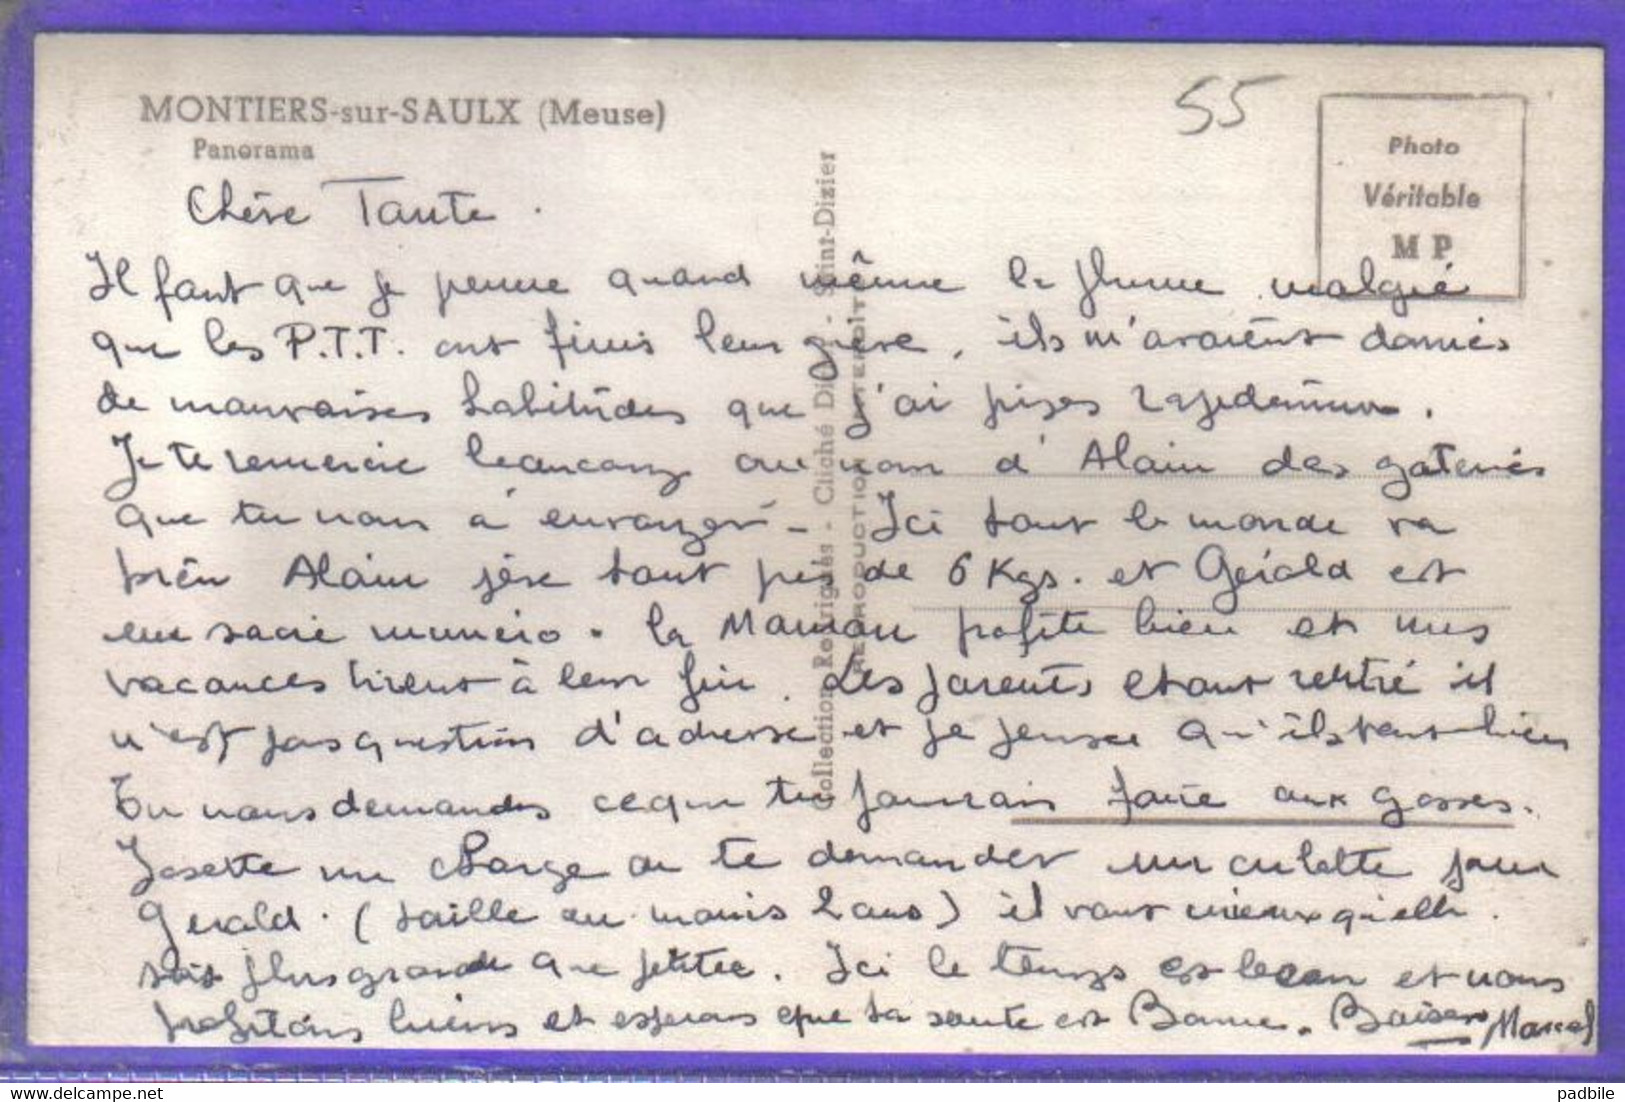 MONTIERS-sur-SAULX (Meuse)
Panorama
55
Photo
Véritable
M P
Chère Tante.
Il faut que je prenne quand même la plume malgré
que les P.T.T. ont finis leur grève, ils m'avaient donnés
de mauvaises habitudes que j'ai prises rapidement.
Je te remercie beaucoup au nom d'Alain des gateries
que tu nous à envoyer - Ici tout le monde va
bien Alain pèse tout près de 6 Kgs. et Gérald est
un sacré numéro. la Maman profite bien et mes
vacances tirent à leur fin. Les parents étant rentré il
n'est pas question d'adresse et je pense qu'ils vont bien
Tu nous demandes ce que tu pourrais faire aux gosses.
Josette me charge de te demander une culotte pour
Gerald. (taille au moins 2 ans) il vaut mieux qu'elle
soit plus grande que petite. Ici le temps est beau et nous
profitons bien et esperons que ta santé est Bonne. Baisers Marcel
Collection Rodrigues - Cliché - Saint-Dizier
REPRODUCTION INTERDITE
padbile